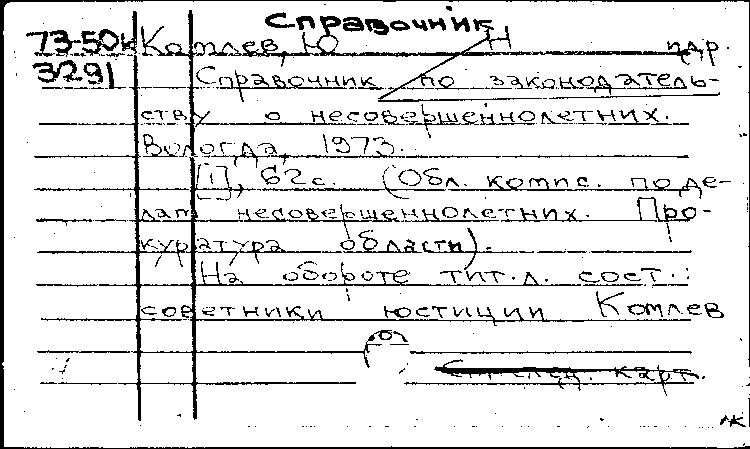 Справочник
73-50к Котлев, Ю Н и др.
3291 Справочник по законодатель-
ству о несовершеннолетних.
Вологда, 1973.
[1], 62 с. (Обл. комис. по де-
лам несовершеннолетних. Про-
куратура области).
На обороте тит. л. сост.:
советники юстиции Котлев
См. след. карт.